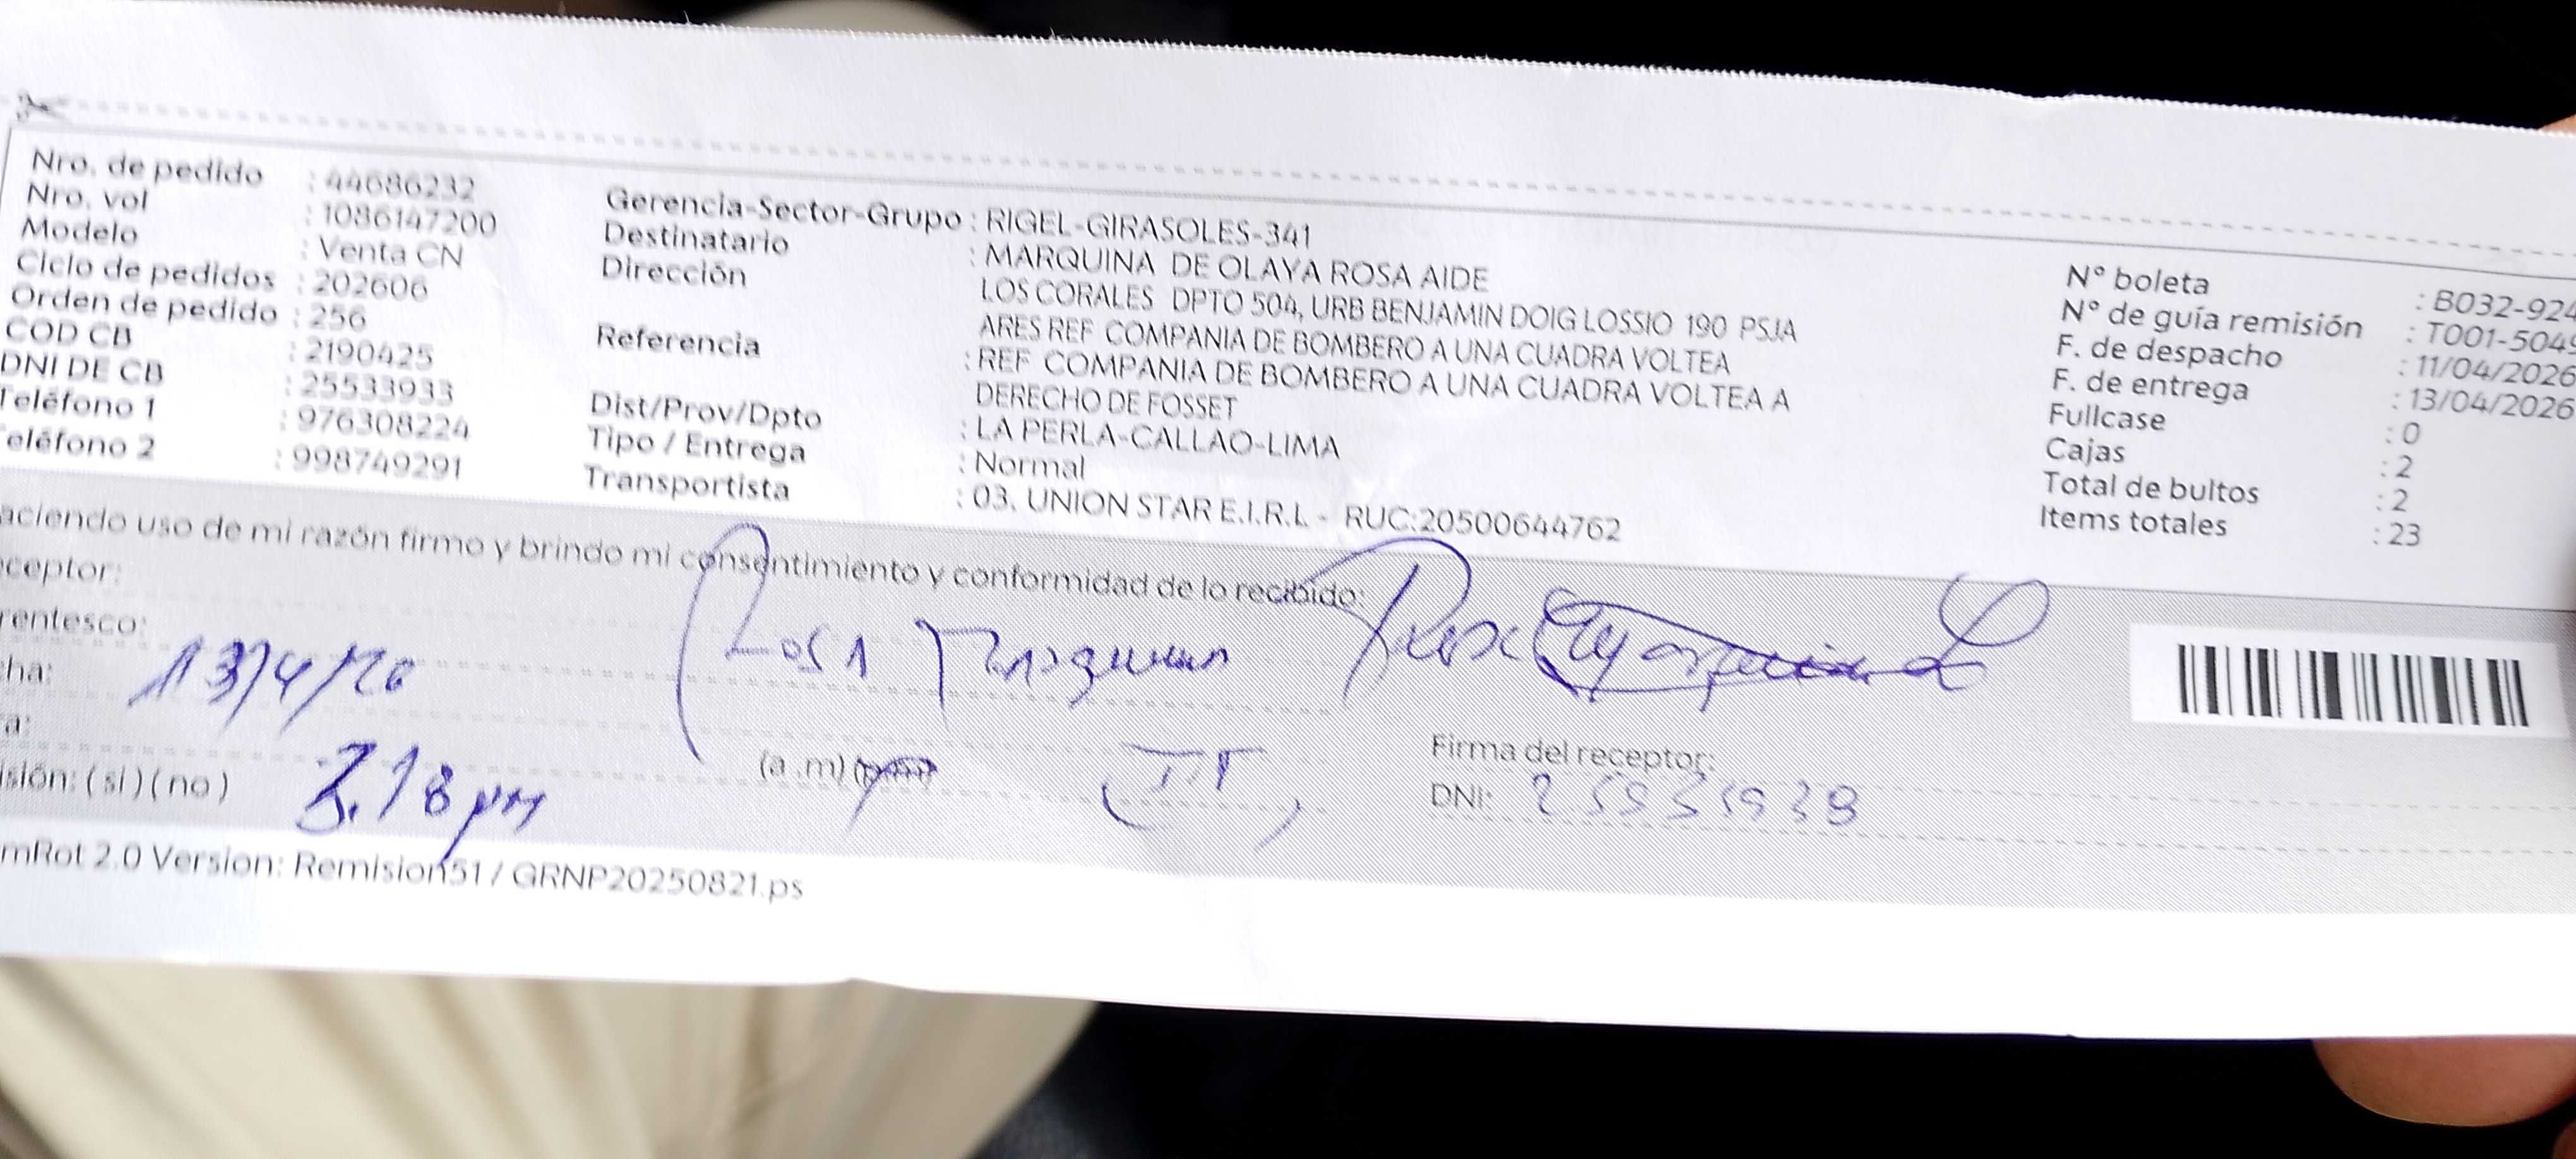 Nro. de pedido : 44686232
Nro. vol : 1086147200
Modelo : Venta CN
Ciclo de pedidos : 202606
Orden de pedido : 256
COD CB : 2190425
DNI DE CB : 25533933
Teléfono 1 : 976308224
eléfono 2 : 998749291
Gerencia-Sector-Grupo : RIGEL-GIRASOLES-341
Destinatario : MARQUINA DE OLAYA ROSA AIDE
Dirección LOS CORALES DPTO 504, URB BENJAMIN DOIG LOSSIO 190 PSJA
ARES REF COMPANIA DE BOMBERO A UNA CUADRA VOLTEA
Referencia : REF COMPANIA DE BOMBERO A UNA CUADRA VOLTEA A
DERECHO DE FOSSET
Dist/Prov/Dpto : LA PERLA-CALLAO-LIMA
Tipo / Entrega : Normal
Transportista : 03. UNION STAR E.I.R.L - RUC:20500644762
N° boleta : B032-924
N° de guía remisión : T001-5049
F. de despacho : 11/04/2026
F. de entrega : 13/04/2026
Fullcase : 0
Cajas : 2
Total de bultos : 2
Items totales : 23
aciendo uso de mi razón firmo y brindo mi consentimiento y conformidad de lo recibido:
ceptor: Rosa Marquina
rentesco:
ha: 13/4/26
a: (a.m)
isión: (si) (no) 3.18 pm
Firma del receptor:
DNI:
mRot 2.0 Version: Remision51 / GRNP20250821.ps